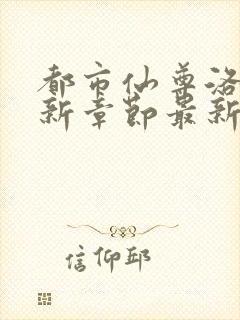 都市仙尊洛
新章节最新
信仰邱